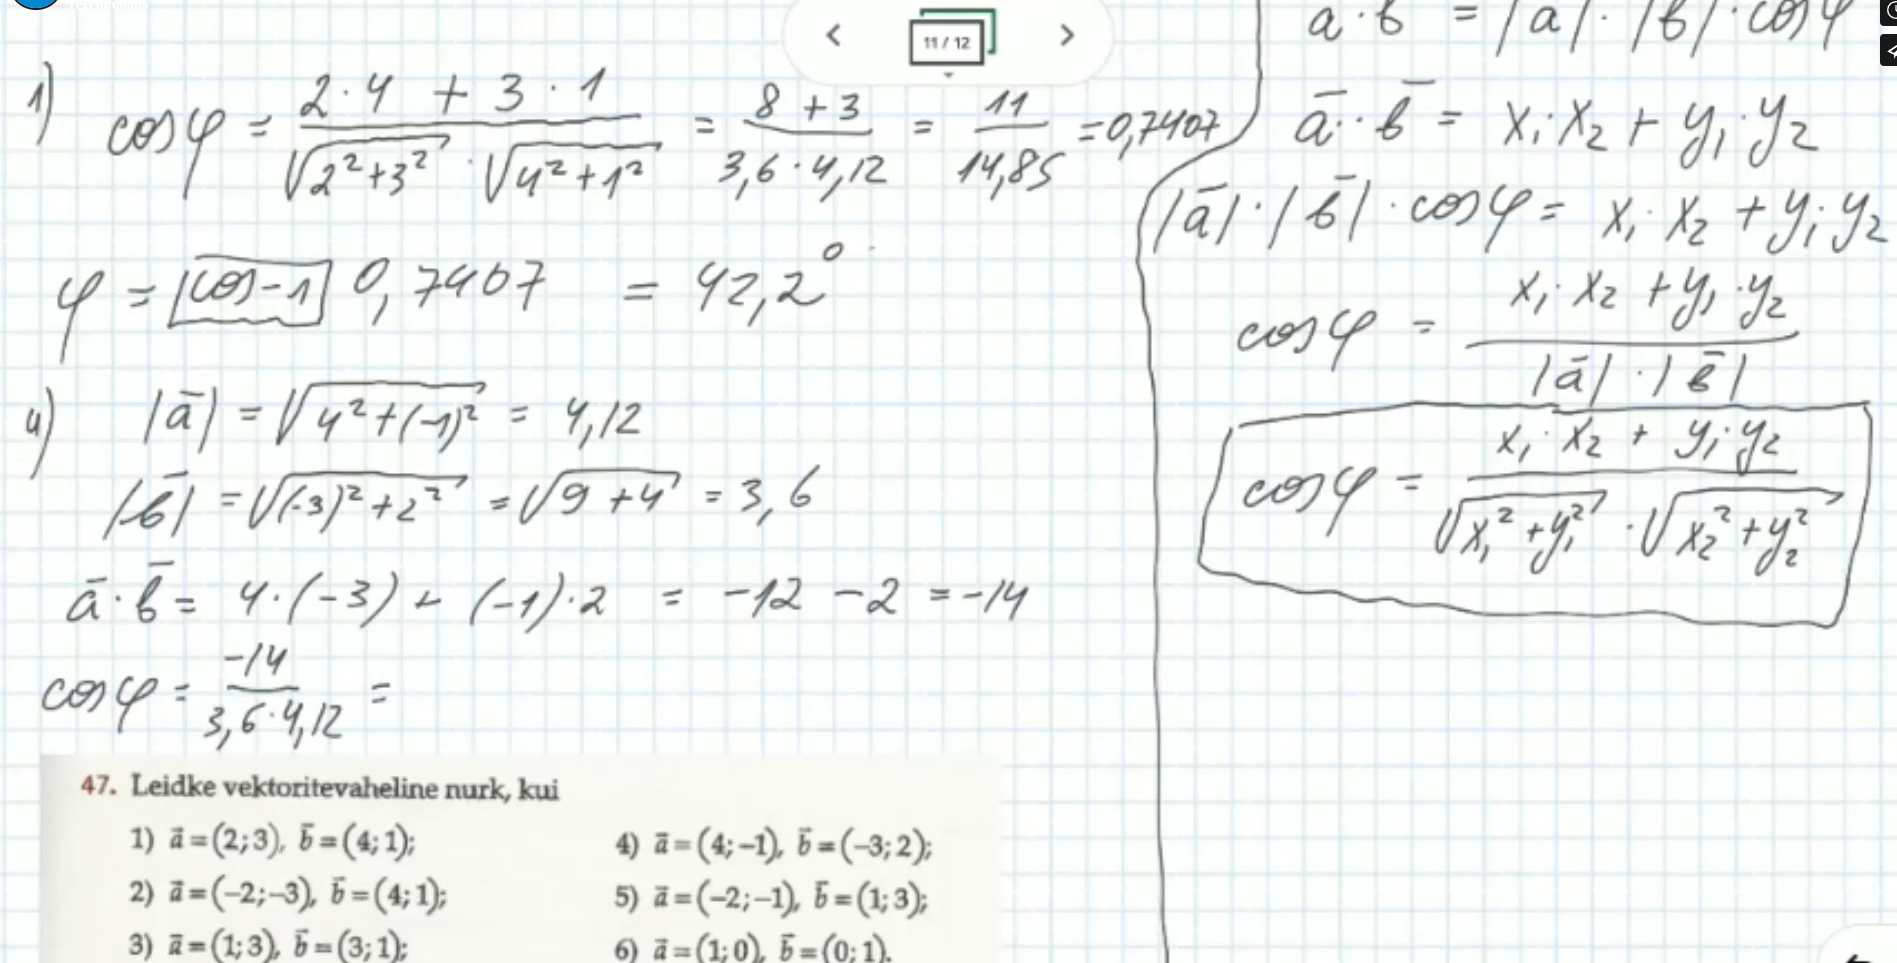 11 / 12
1) cosφ = (2·4 + 3·1)/(√(2²+3²) · √(4²+1²)) = (8 + 3)/(3,6 · 4,12) = 11/14,85 = 0,7407
φ = [cos-1] 0,7407 = 42,2°
4) |ā| = √(4²+(-1)²) = 4,12
|b̄| = √((-3)²+2²) = √(9+4) = 3,6
ā · b̄ = 4·(-3) + (-1)·2 = -12 - 2 = -14
cosφ = -14/(3,6·4,12) =
a · b = |a| · |b| · cosφ
ā · b̄ = x₁·x₂ + y₁·y₂
|ā| · |b̄| · cosφ = x₁·x₂ + y₁·y₂
cosφ = (x₁·x₂ + y₁·y₂)/(|ā| · |b̄|)
cosφ = (x₁·x₂ + y₁·y₂)/(√(x₁²+y₁²) · √(x₂²+y₂²))
47. Leidke vektoritevaheline nurk, kui
1) ā = (2; 3), b̄ = (4; 1);
2) ā = (−2; −3), b̄ = (4; 1);
3) ā = (1; 3), b̄ = (3; 1);
4) ā = (4; −1), b̄ = (−3; 2);
5) ā = (−2; −1), b̄ = (1; 3);
6) ā = (1; 0), b̄ = (0; 1).